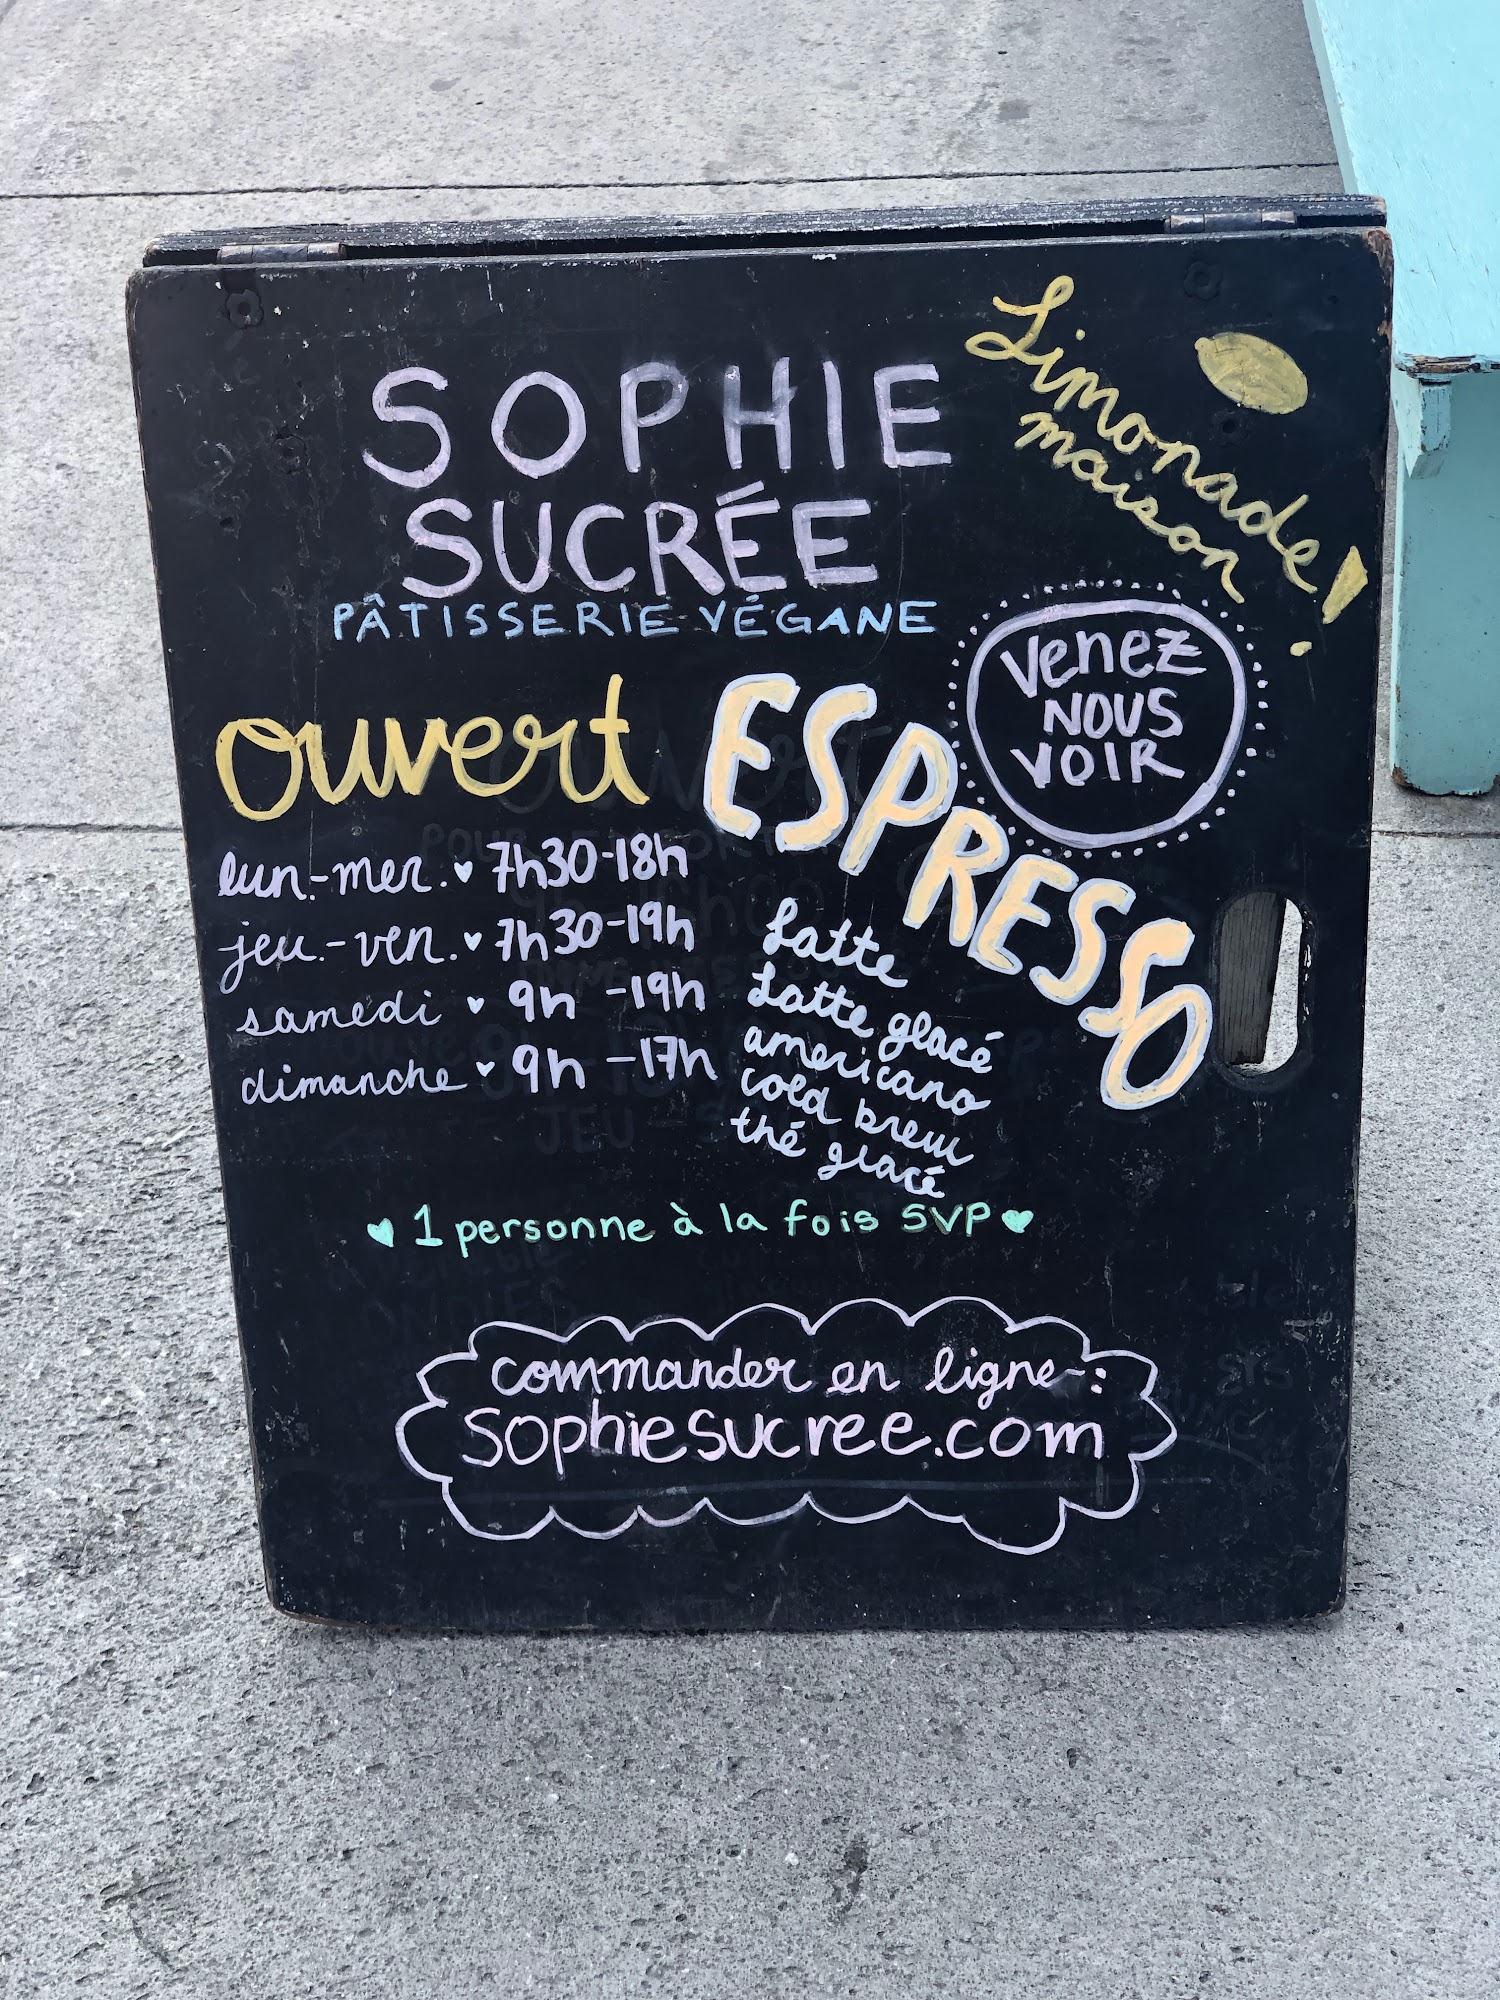 SOPHIE
SUCRÉE
PÂTISSERIE VÉGANE
Limonade!
maison
venez
NOUS
VOIR
ouvert
lun.-mer. 7h30-18h
jeu.-ven. 7h30-19h
samedi 9h -19h
dimanche 9h -17h
ESPRESSO
Latte
Latte glacé
americano
cold brew
thé glacé
1 personne à la fois SVP
commander en ligne:
sophiesucree.com